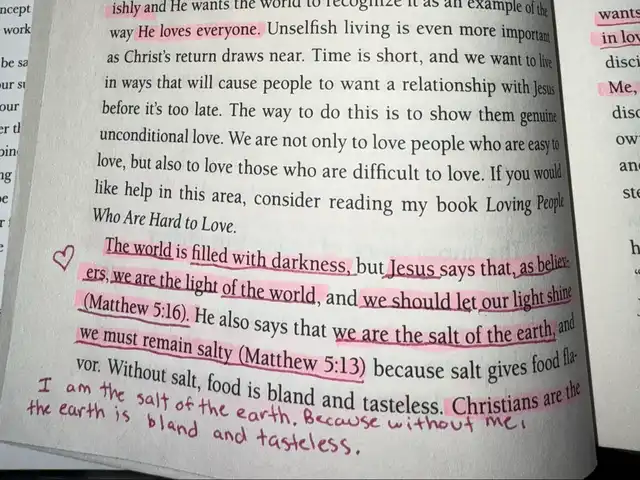 ncept
work
be sa
our
er th
ng
ishly and He wants the world to recognize it as an example of the
way He loves everyone. Unselfish living is even more important
as Christ's return draws near. Time is short, and we want to live
in ways that will cause people to want a relationship with Jesus
before it's too late. The way to do this is to show them genuine
unconditional love. We are not only to love people who are easy to
love, but also to love those who are difficult to love. If you would
like help in this area, consider reading my book Loving People
Who Are Hard to Love.
The world is filled with darkness, but Jesus says that, as believ-
ers, we are the light of the world, and we should let our light shine
(Matthew 5:16). He also says that we are the salt of the earth, and
we must remain salty (Matthew 5:13) because salt gives food fla-
vor. Without salt, food is bland and tasteless. Christians are the
I am the salt of the earth. Because without me,
the earth is bland and tasteless.
wants
in lov
disci
Me,
disc
ow
an
ste
h